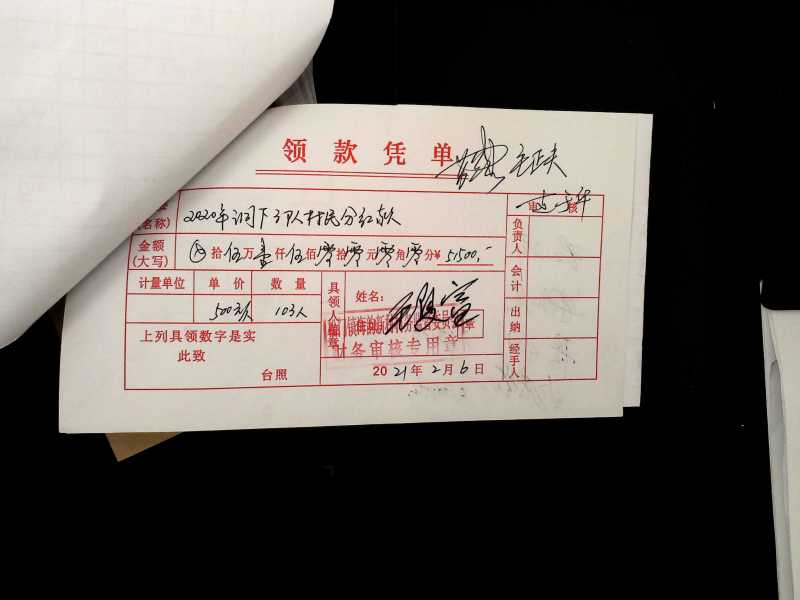 领款凭单
名称) 2020年洞下3队村民分红款
审核
金额(大写) ⊗拾伍万壹仟伍佰零拾零元零角零分¥ 51500,-
负责人
会计
出纳
经手人
计量单位 单价 数量 具领人 姓名:
500元/人 103人
上列具领数字是实
此致
台照
财务审核专用章
2021年2月6日